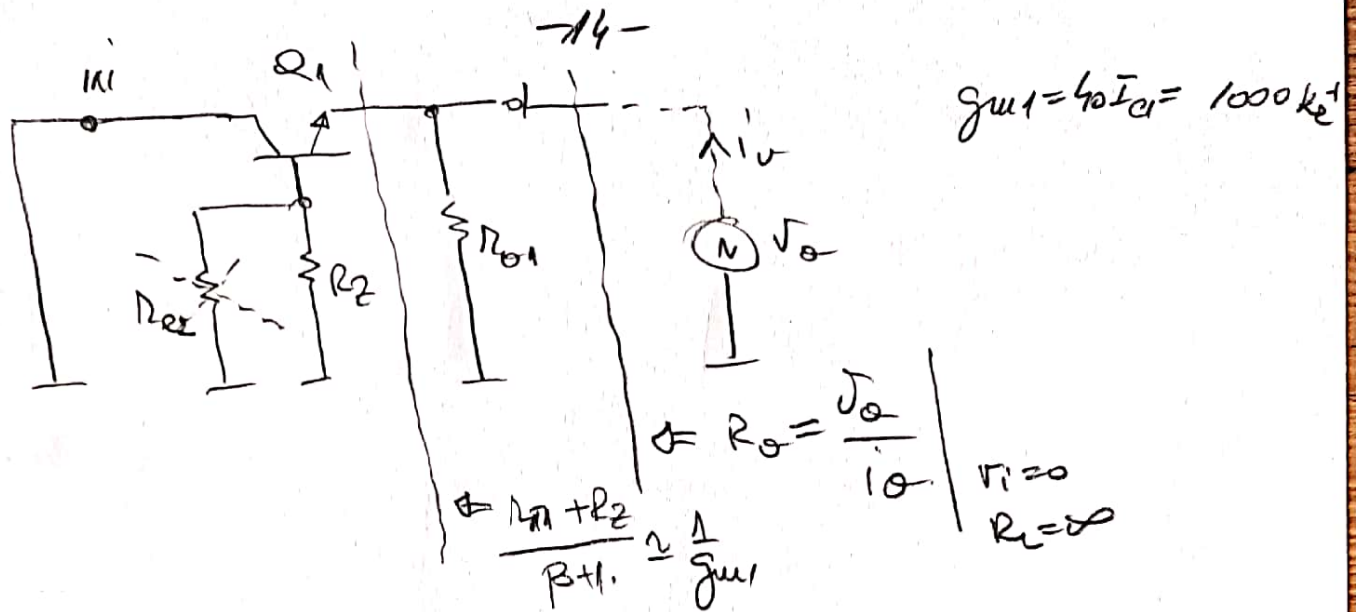 -14-
IN
Q1
gm1 = 40 Ic1 = 1000 k
io
ro1
Vo
RZ
Ro = Vo / io | vi = 0
RL = ∞
rπ + RZ / β+1 ≃ 1 / gm1